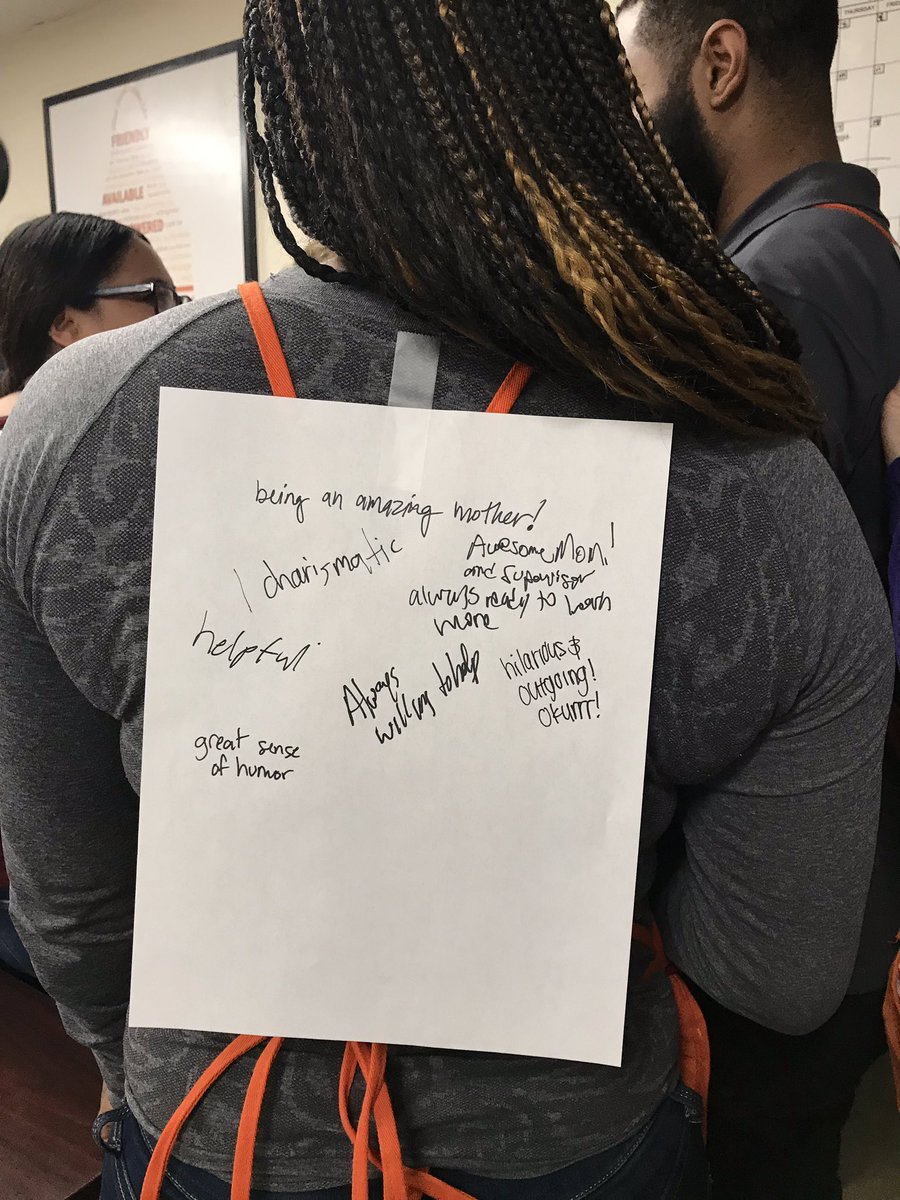 FRIENDLY
AVAILABLE
THURSDAY
being an amazing mother!
charismatic
Awesome Mom!
and supervisor
always ready to learn
more
helpful
Always
willing to help
hilarious &
outgoing!
okurrr!
great sense
of humor